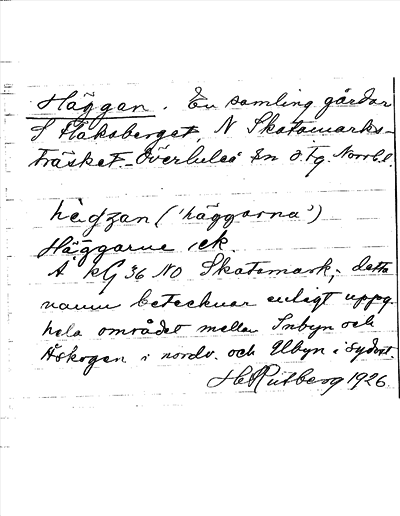 Häggan. En samling gårdar
S Håksberget, N Skatamarks-
träsket. Överluleå sn o. tg. Norrb l.
hègzan ('häggarna')
Häggarne, ek.
Å kG 36 NO Skatamark; detta
namn betecknar enligt uppg.
hela området mellan Inbyn och
Åskogen i nordv. och Ubyn i sydost.
H Rutberg 1926.